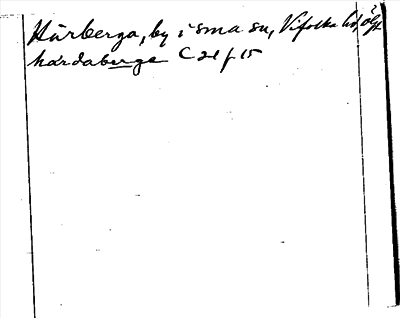 Hårberga, by i sma sn, Vifolka hd, Ög.
hardaberge C 21 f 15